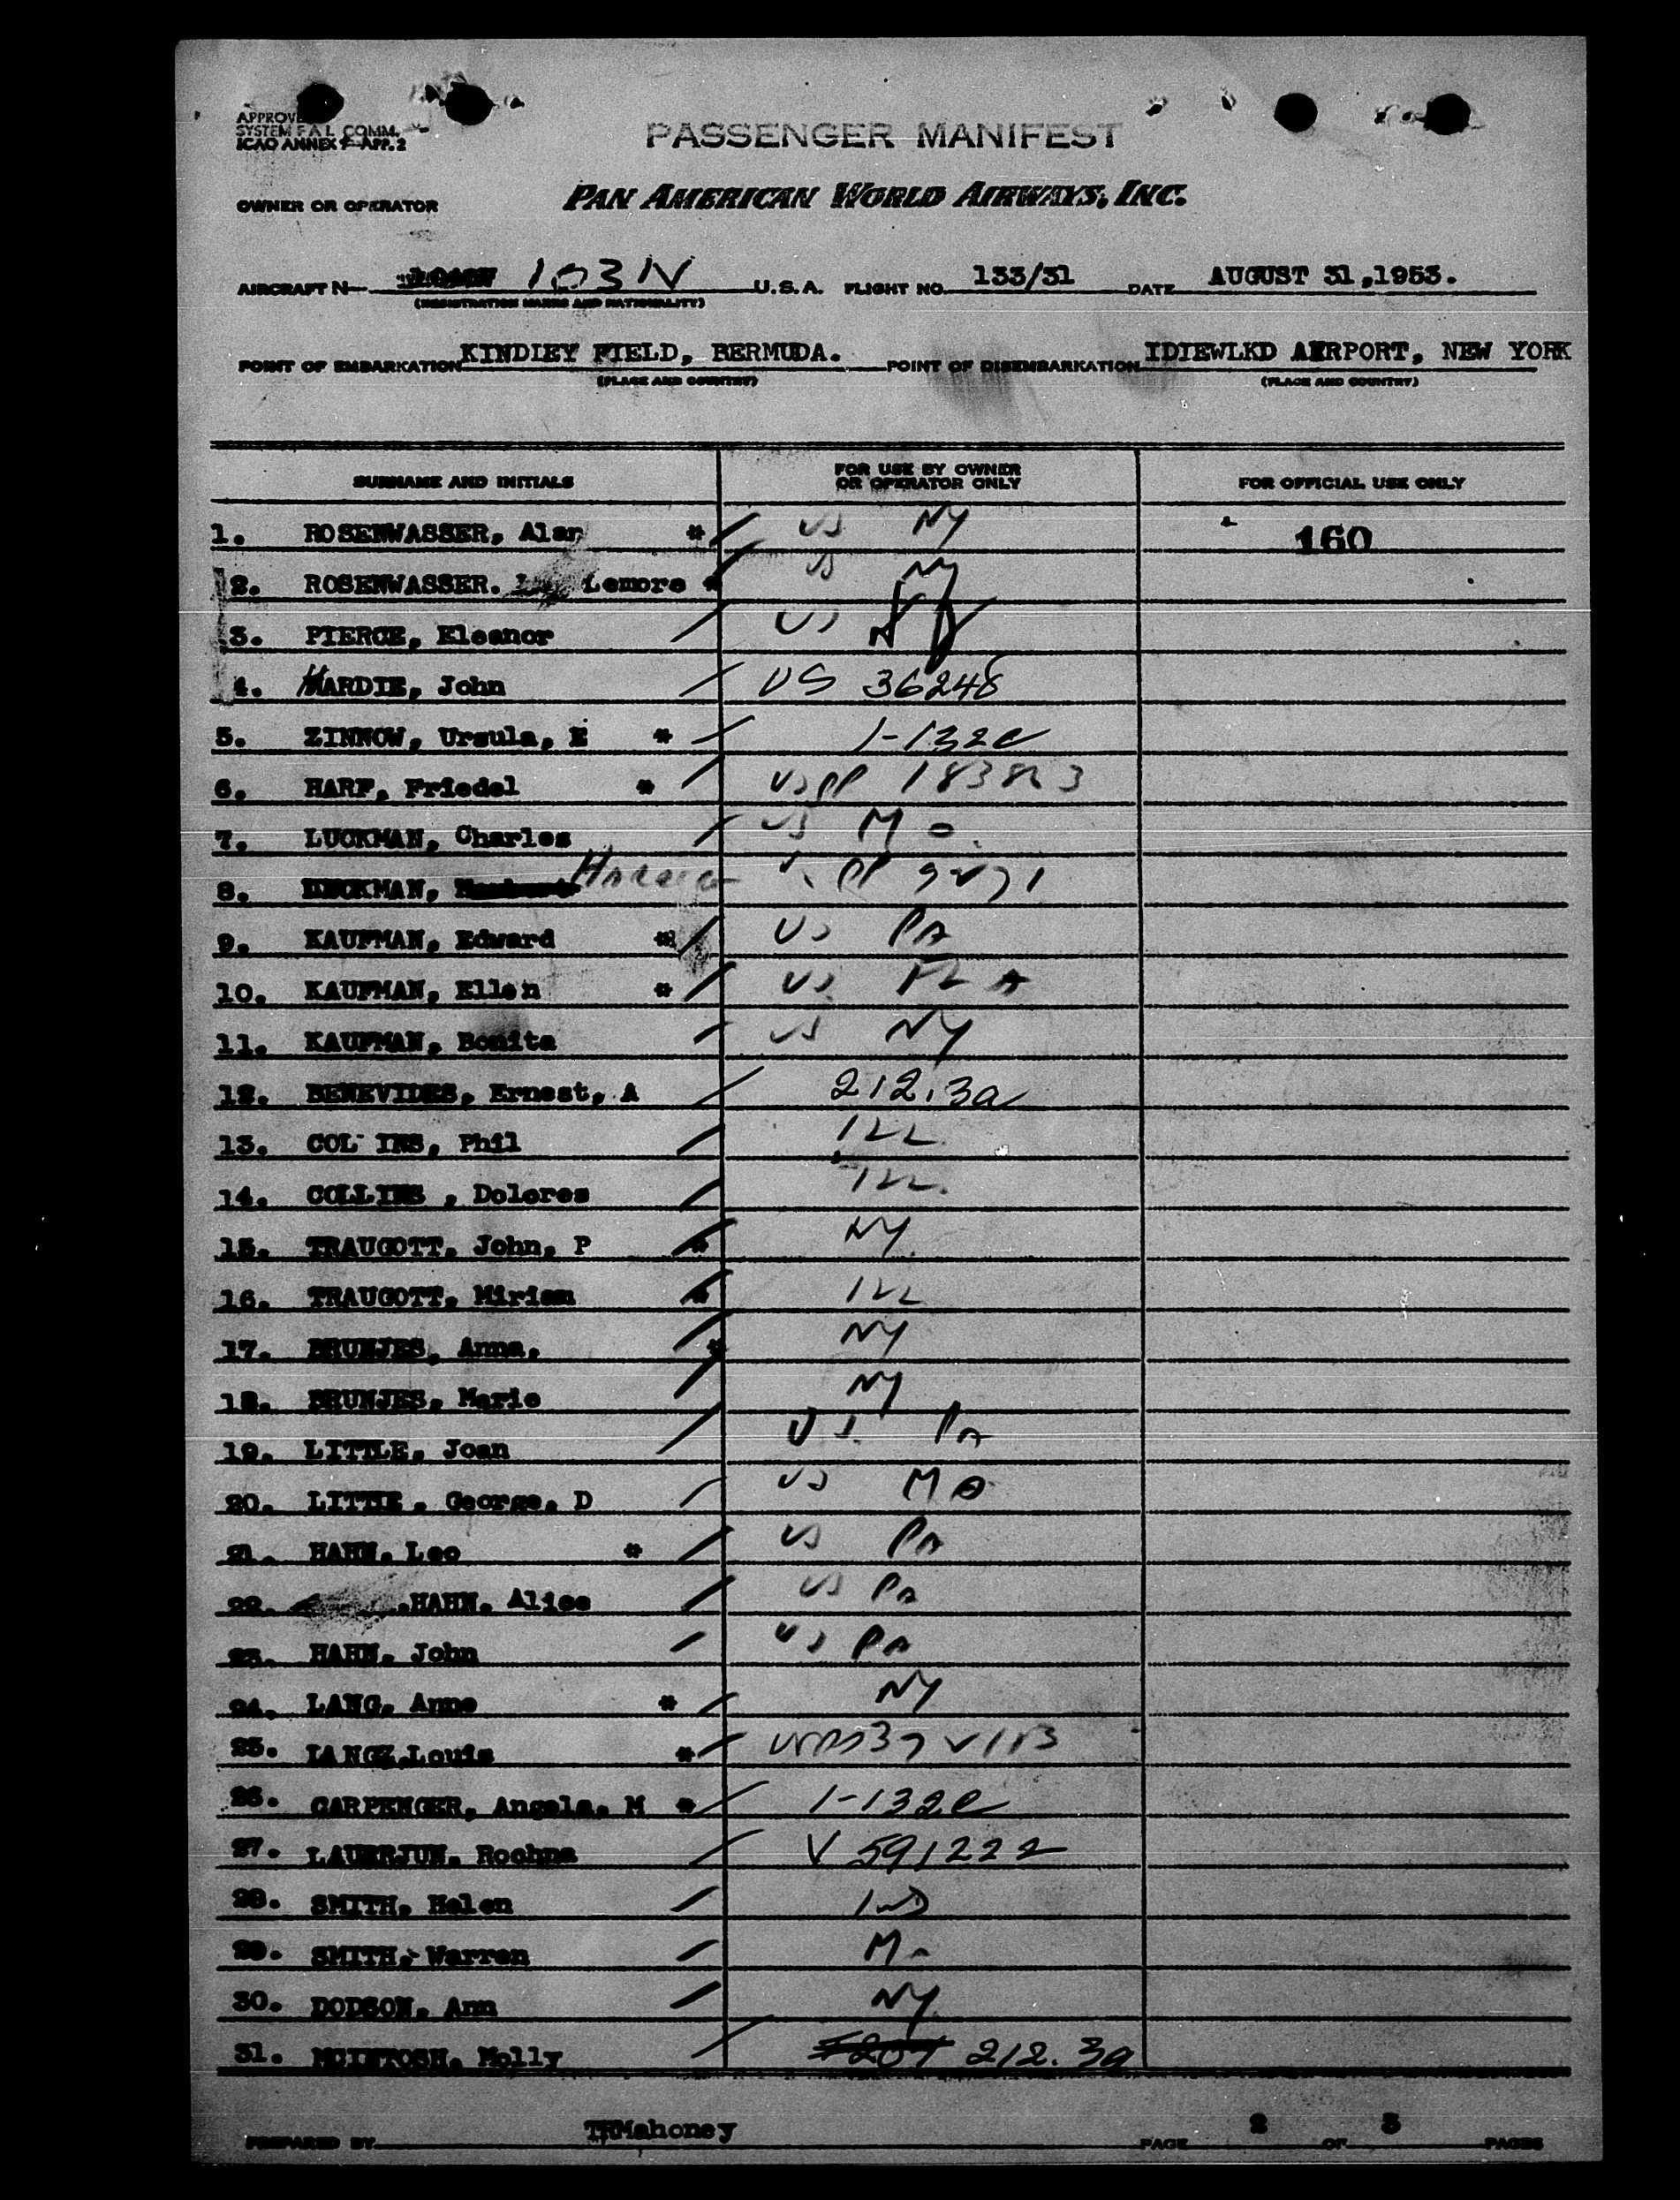 SYSTEM F A L COMM.
ICAO ANNEX 9 APP. 2
PASSENGER MANIFEST
OWNER OR OPERATOR PAN AMERICAN WORLD AIRWAYS, INC.
AIRCRAFT N 103 IV U.S.A. FLIGHT NO. 133/31 DATE AUGUST 31,1953.
(REGISTRATION MARKS AND NATIONALITY)
POINT OF EMBARKATION KINDIEY FIELD, BERMUDA. POINT OF DISEMBARKATION IDIEWLKD AERPORT, NEW YORK
(PLACE AND COUNTRY) (PLACE AND COUNTRY)
SURNAME AND INITIALS FOR USE BY OWNER OR OPERATOR ONLY FOR OFFICIAL USE ONLY
1. ROSENWASSER, Alan * US NY 160
2. ROSENWASSER. Lemore * US NY
3. PIERCE, Eleanor US NY
4. HARDIE, John US 36248
5. ZINNOW, Ursula, E * 1-132e
6. HARF, Friedel * US PP
7. LUCKMAN, Charles US MO
8. PP
9. KAUFMAN, Edward * US PA
10. KAUFMAN, Ellen * US FLA
11. KAUFMAN, Bonita US NY
12. BENEVIDES, Ernest, A 212.3a
13. COL INS, Phil ILL
14. COLLINS , Dolores ILL.
15. TRAUGOTT, John, P * NY.
16. TRAUGOTT, Miriam * ILL
17. BRUNJES, Anna. * NY
18. BRUNJES, Marie NY
19. LITTLE, Joan US. PA
20. LITTIE , George, D US MO
21. HAHN, Leo * US PA
22. .HAHN. Alice US PA
23. HAHN, John US PA
24. LANG, Anne * NY
25. Louis *
26. CARPENGER, Angela, M * 1-132e
27. LAUERJUN, V 591222
28. SMITH, Helen IND
29. SMITH, Warren
30. DODSON, Ann NY.
31. MCINTOSH, Molly 212. 3a
PREPARED BY THMahoney PAGE 2 OF 3 PAGES